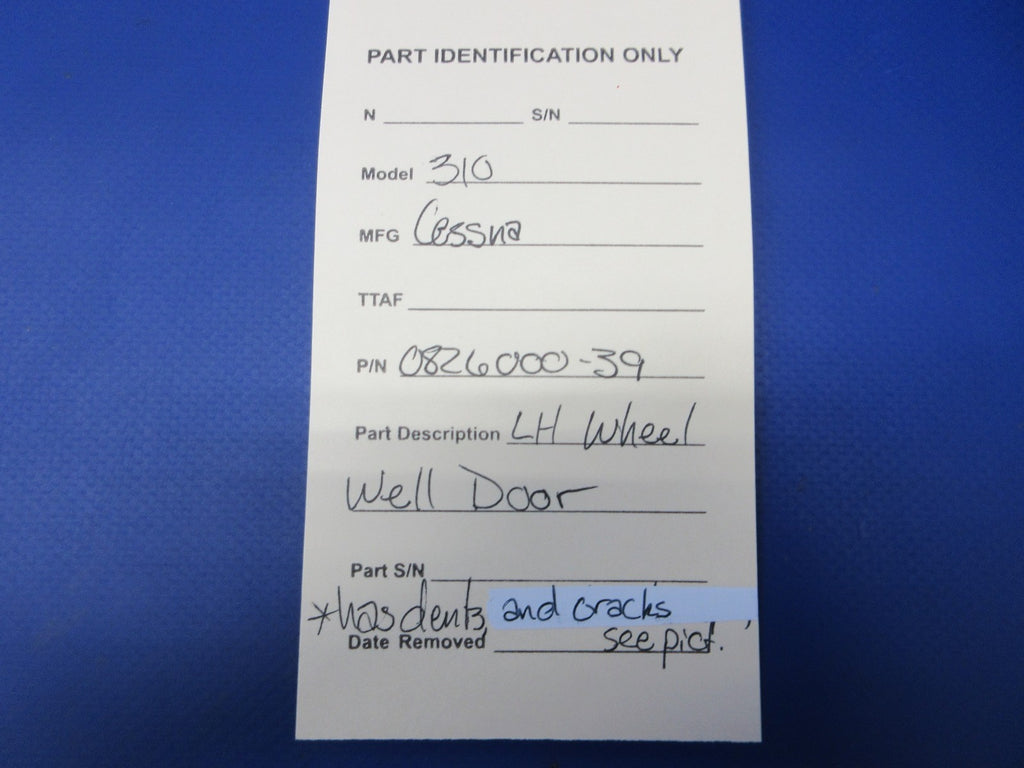 PART IDENTIFICATION ONLY
N S/N
Model 310
MFG Cessna
TTAF
P/N 0826000-39
Part Description LH Wheel
Well Door
Part S/N
*has dents, and cracks
Date Removed see pict.